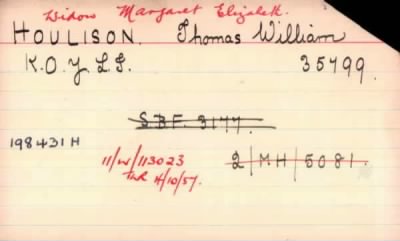 Widow Margaret Elizabeth.
HOULISON. Thomas William
K.O.Y.L.I. 35799.
S.B.F. 3177.
198431H
11/W/113023 2/MH/5081.
4/10/57.